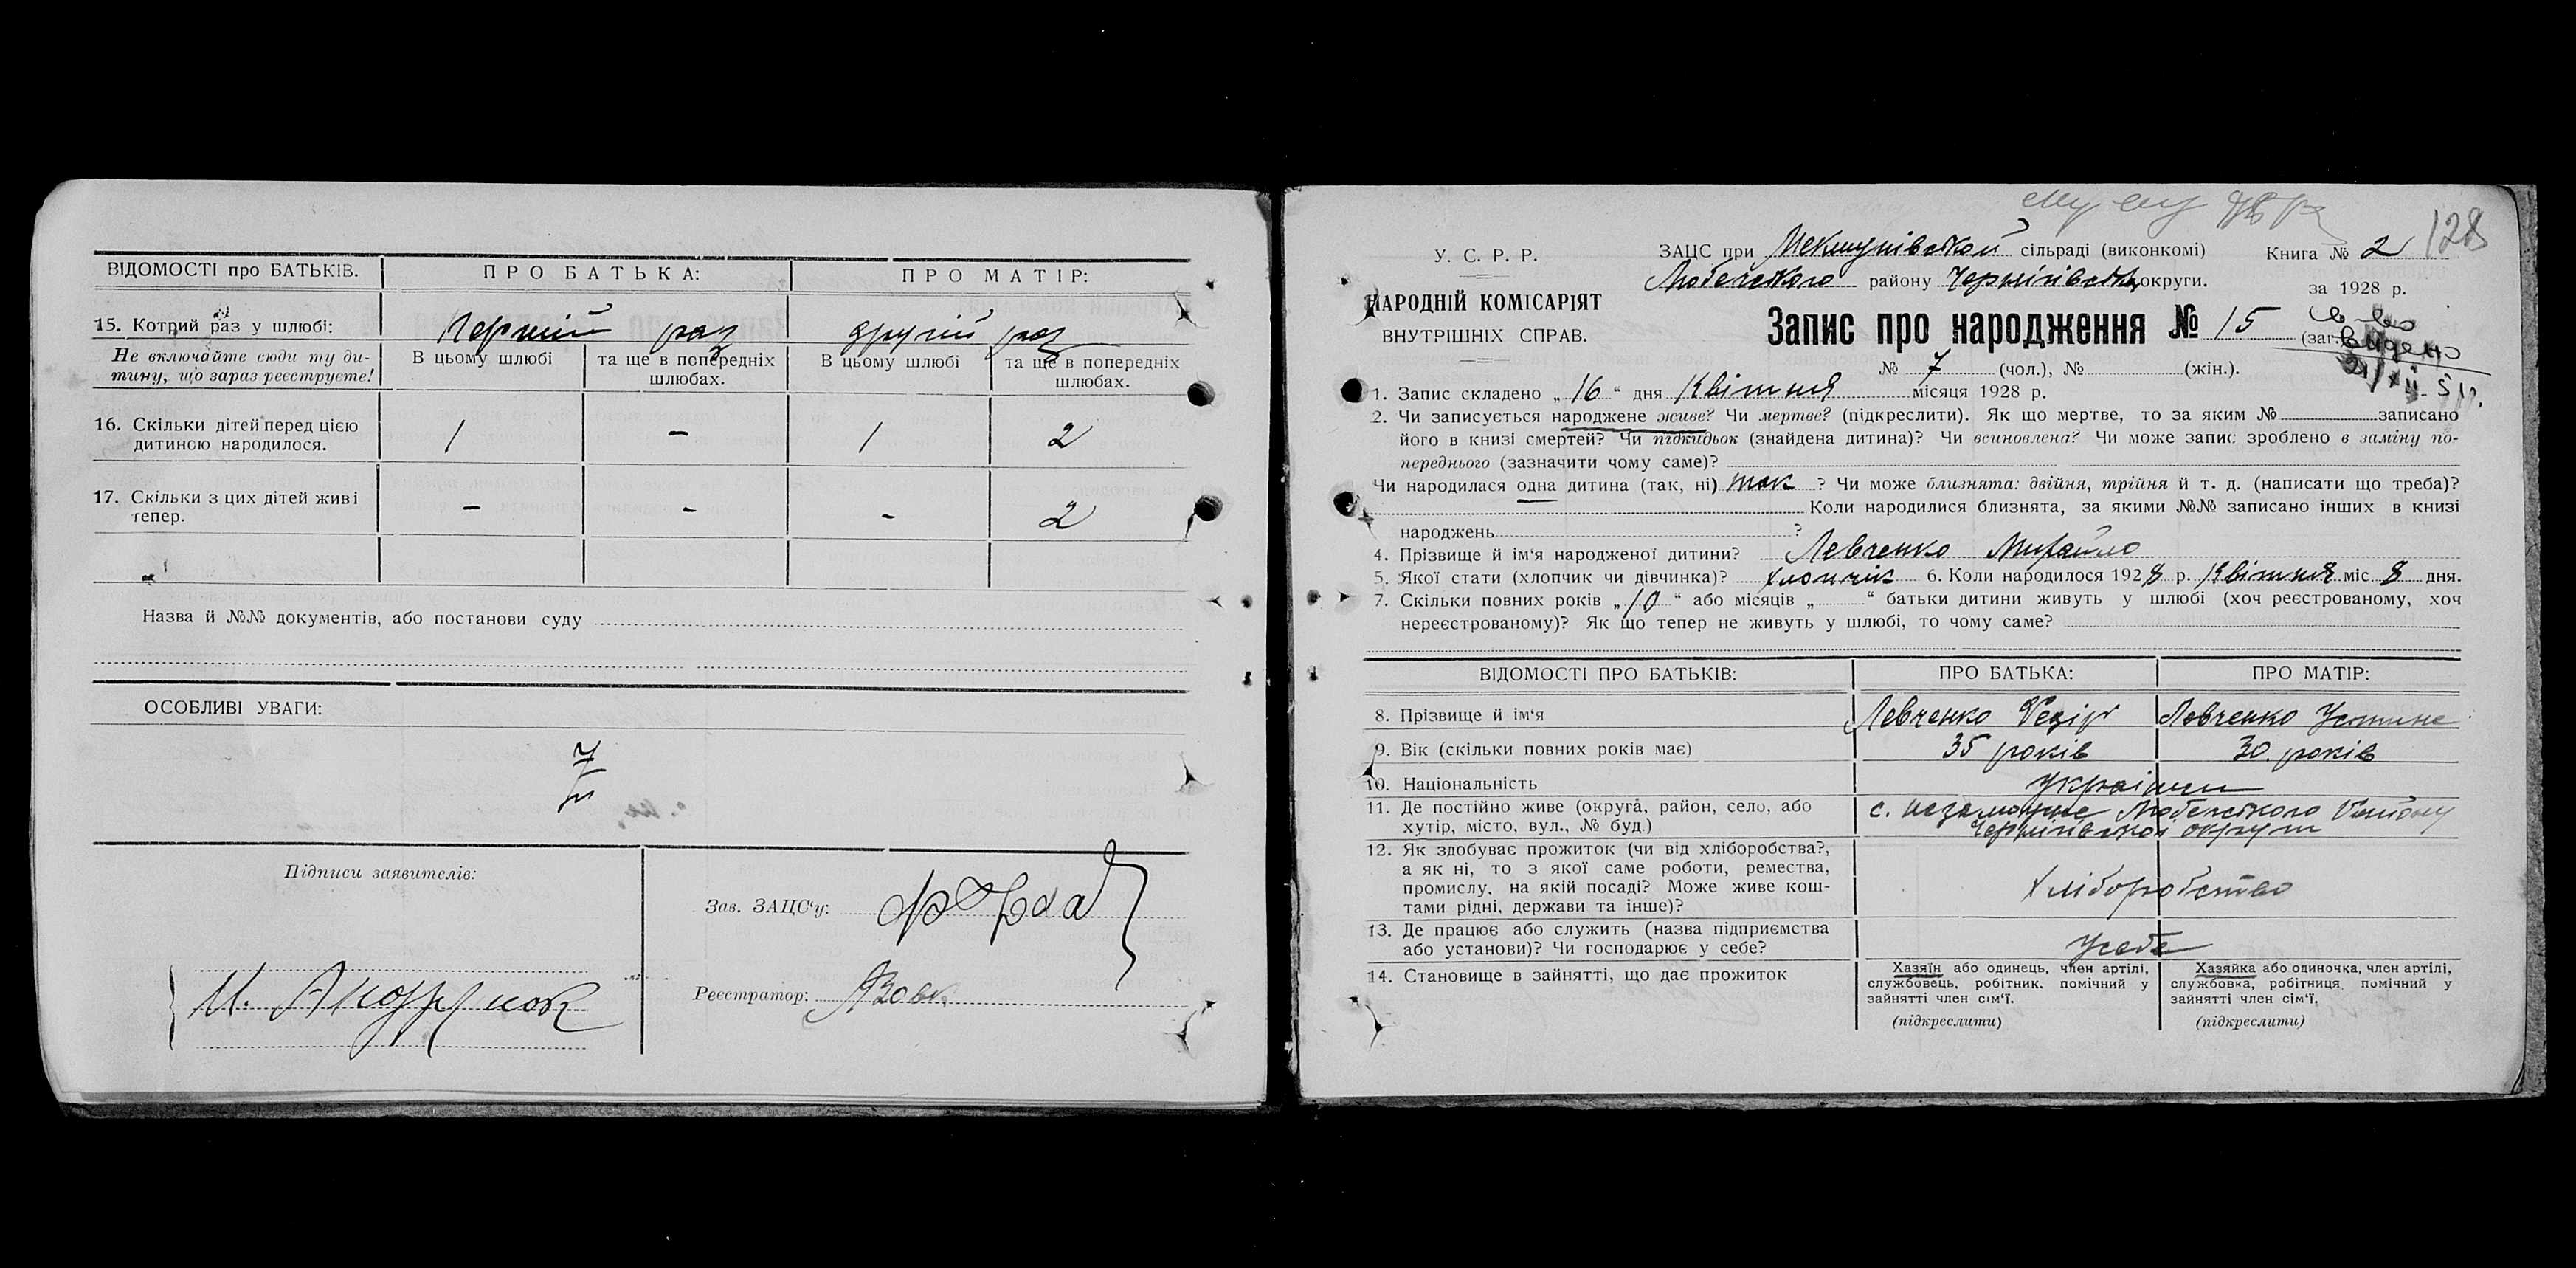 ВІДОМОСТІ про БАТЬКІВ. ПРО БАТЬКА: ПРО МАТІР:
15. Котрий раз у шлюбі: Перший раз другій раз
Не включайте сюди ту ди-
тину, що зараз реєструєте!
В цьому шлюбі та ще в попередніх шлюбах. В цьому шлюбі та ще в попередніх шлюбах.
16. Скільки дітей перед цією
дитиною народилося. 1 - 1 2
17. Скільки з цих дітей живі
тепер. - - - 2
Назва й №№ документів, або постанови суду
ОСОБЛИВІ УВАГИ:
Підписи заявителів:
Зав. ЗАЦС'у:
Реєстратор: Вовк
128
У. С. Р. Р.
НАРОДНІЙ КОМІСАРІЯТ
ВНУТРІШНІХ СПРАВ.
ЗАЦС при сільраді (виконкомі) Книга № 2
Любечского району Чернігівськ округи. за 1928 р.
Запис про народження № 15 (заг.
№ 7 (чол.), № (жін.).
св-во
видено
1. Запис складено „16“ дня Квітня місяця 1928 р.
2. Чи записується народжене живе? Чи мертве? (підкреслити). Як що мертве, то за яким № записано
його в книзі смертей? Чи підкидьок (знайдена дитина)? Чи всиновлена? Чи може запис зроблено в заміну по-
переднього (зазначити чому саме)?
Чи народилася одна дитина (так, ні) так ? Чи може близнята: двійня, трійня й т. д. (написати що треба)?
Коли народилися близнята, за якими №№ записано інших в книзі
народжень ?
4. Прізвище й ім'я народженої дитини? Левченко Михайло
5. Якої стати (хлопчик чи дівчинка)? хлопчік 6. Коли народилося 1928 р. Квітня міс 8 дня.
7. Скільки повних років „10“ або місяців „ “ батьки дитини живуть у шлюбі (хоч реєстрованому, хоч
нереєстрованому)? Як що тепер не живуть у шлюбі, то чому саме?
ВІДОМОСТІ ПРО БАТЬКІВ: ПРО БАТЬКА: ПРО МАТІР:
8. Прізвище й ім'я Левченко Левченко Устина
9. Вік (скільки повних років має) 35 років 30 років
10. Національність Українци
11. Де постійно живе (округа, район, село, або
хутір, місто, вул., № буд.)
с. Любечского Району
Чернігівской округи
12. Як здобуває прожиток (чи від хліборобства?,
а як ні, то з якої саме роботи, ремества,
промислу, на якій посаді? Може живе кош-
тами рідні, держави та інше)?
Хліборобство
13. Де працює або служить (назва підприємства
або установи)? Чи господарює у себе?
Усебе
14. Становище в зайнятті, що дає прожиток
Хазяїн або одинець, член артілі,
службовець, робітник, помічний у
зайнятті член сім'ї.
(підкреслити)
Хазяйка або одиночка, член артілі,
службовка, робітниця, помічний у
зайнятті член сім'ї.
(підкреслити)